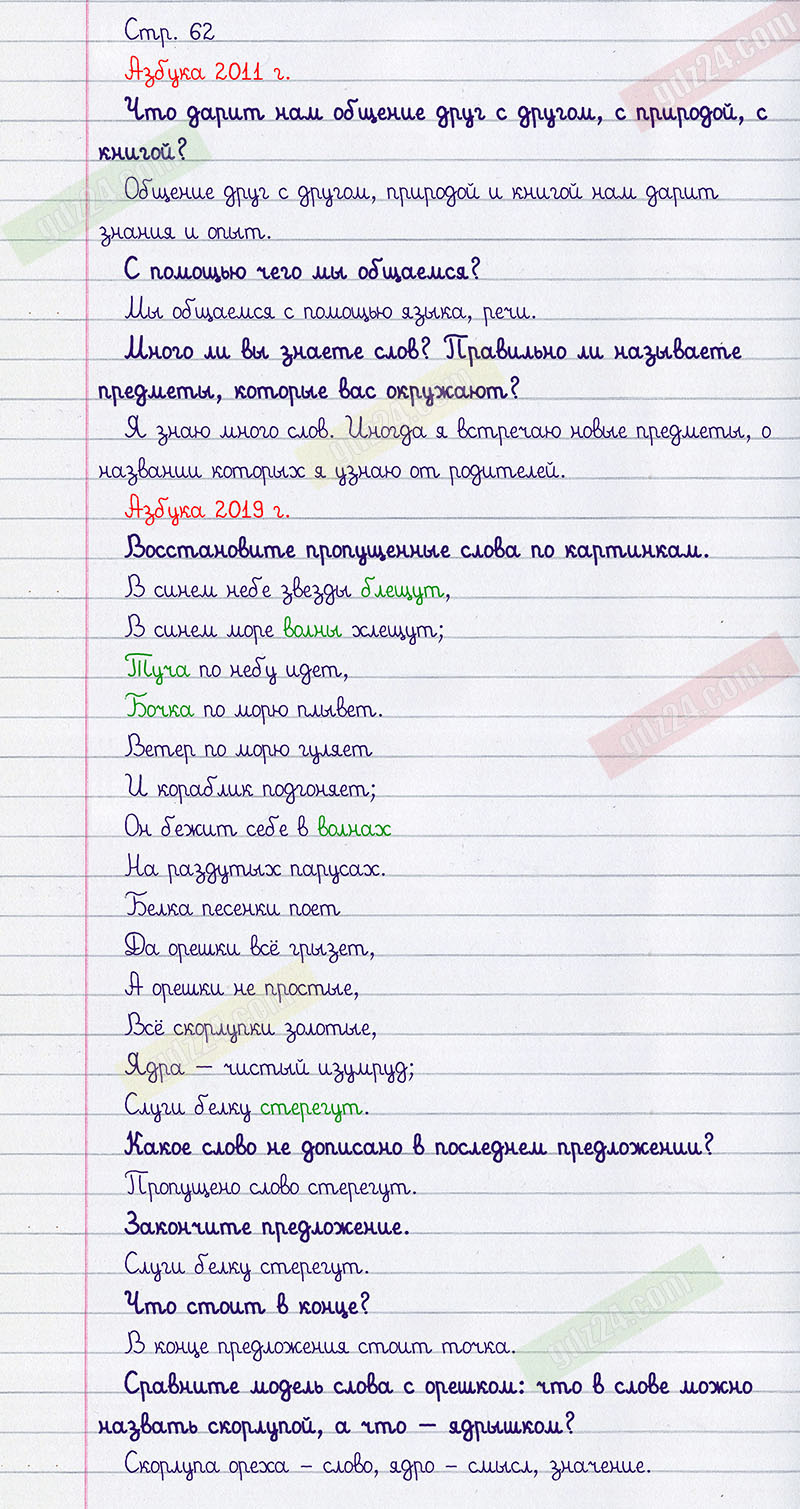 Стр. 62
Азбука 2011 г.
Что дарит нам общение друг с другом, с природой, с
книгой?
Общение друг с другом, природой и книгой нам дарит
знания и опыт.
С помощью чего мы общаемся?
Мы общаемся с помощью языка, речи.
Много ли вы знаете слов? Правильно ли называете
предметы, которые вас окружают?
Я знаю много слов. Иногда я встречаю новые предметы, о
названии которых я узнаю от родителей.
Азбука 2019 г.
Восстановите пропущенные слова по картинкам.
В синем небе звезды блещут,
В синем море волны хлещут;
Туча по небу идет,
Бочка по морю плывет.
Ветер по морю гуляет
И кораблик подгоняет;
Он бежит себе в волнах
На раздутых парусах.
Белка песенки поет
Да орешки всё грызет,
А орешки не простые,
Всё скорлупки золотые,
Ядра – чистый изумруд;
Слуги белку стерегут.
Какое слово не дописано в последнем предложении?
Пропущено слово стерегут.
Закончите предложение.
Слуги белку стерегут.
Что стоит в конце?
В конце предложения стоит точка.
Сравните модель слова с орешком: что в слове можно
назвать скорлупой, а что – ядрышком?
Скорлупа ореха – слово, ядро – смысл, значение.
gdz24.com
gdz24.com
gdz24.com
gdz24.com
gdz24.com
gdz24.com